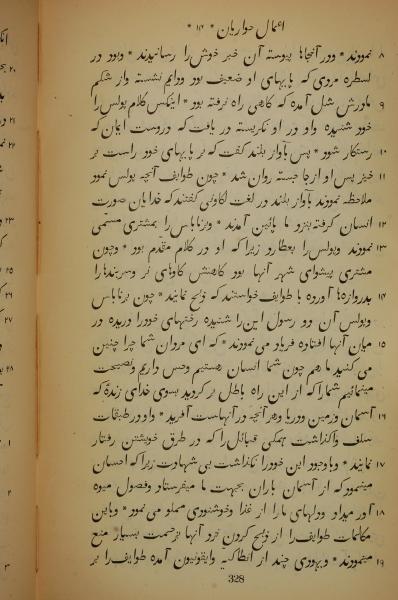 اعمال حواریان * ۱۴ *
۸ نمودند * ودر آنجاها پیوسته آن خبر خوش را رسانیدند * وبود در
لسطره مردی که پایهای او ضعیف بود ودایم نشسته واز شکم
۹ مادرش شل آمده که گاهی راه نرفته بود * اینکس کلام پولس را
خود شنیده واو در او نگریسته در یافت که دروست ایمان که
۱۰ رستگار شود * پس بآواز بلند گفت که بر پایهای خود راست بر
۱۱ خیز پس او از جا جسته روان شد * چون طوایف آنچه پولس نمود
ملاحظه نمودند بآواز بلند در لغت لکاونی گفتند که خدایان صورت
۱۲ انسان گرفته بنزد ما پائین آمدند * وبرناباس را بمشتری مسمی
۱۳ نمودند وپولس را بعطارد زیرا که او در کلام مقدم بود * وچون
مشتری پیشوای شهر آنها بود کاهنش گاوهای نر وسربندها را
۱۴ بدروازها آورده با طوایف خواستند که ذبح نمایند * چون برناباس
وپولس آن دو رسول این را شنیده رختهای خودرا دریده در
۱۵ میان آنها افتاده فریاد می نمودند * که ای مردان شما چرا چنین
می کنید ما هم چون شما انسان هستیم وحس داریم ونصیحت
مینمائیم شمارا که از این راه باطل بر گردید بسوی خدای زنده که
۱۶ آسمان وزمین ودریا وهر آنچه در آنهاست آفرید * واو در طبقات
سلف واگذاشت همگی قبائل را که در طرق خویشتن رفتار
۱۷ نمایند * وبا وجود این خودرا نگذاشت بی شهادت زیرا که احسان
مینمود که از آسمان باران بجهت ما میفرستاد وفصول میوه
۱۸ آور میداد ودلهای مارا از غذا وخوشنودی مملو می نمود * وباین
مکالمات طوایف را از ذبح کردن نزد آنها بزحمت بسیار منع
۱۹ مینمودند * ویهودی چند از انطاکیه وایقونیون آمده طوایف را بر
328